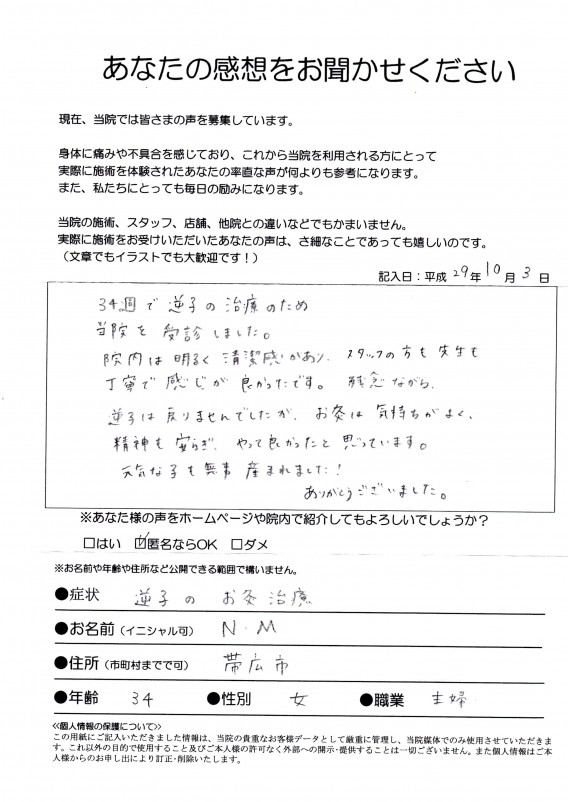 あなたの感想をお聞かせください
現在、当院では皆さまの声を募集しています。
身体に痛みや不具合を感じており、これから当院を利用される方にとって
実際に施術を体験されたあなたの率直な声が何よりも参考になります。
また、私たちにとっても毎日の励みになります。
当院の施術、スタッフ、店舗、他院との違いなどでもかまいません。
実際に施術をお受けいただいたあなたの声は、ささ細なことであっても嬉しいのです。
（文章でもイラストでも大歓迎です！）
記入日：平成 29年 10月 3日
34週で逆子の治療のため
当院を受診しました。
院内は明るく清潔感があり、スタッフの方も先生も
丁寧で感じが良かったです。残念ながら、
逆子は戻りませんでしたが、お灸は気持ちがよく、
精神も安らぎ、やって良かったと思っています。
元気な子も無事産まれました！
ありがとうございました。
※あなた様の声をホームページや院内で紹介してもよろしいでしょうか？
□はい ☑匿名ならOK □ダメ
※お名前や年齢や住所など公開できる範囲で構いません。
●症状 逆子のお灸治療
●お名前（イニシャル可） N・M
●住所（市町村までで可） 帯広市
●年齢 34 ●性別 女 ●職業 主婦
≪個人情報の保護について≫
この用紙にご記入いただきました情報は、当院の貴重なお客様データとして厳重に管理し、当院媒体でのみ使用させていただきま
す。これ以外の目的で使用すること及びご本人様の許可なく外部への開示・提供することは一切ございません。また個人情報はご本
人様からのお申し出により訂正・削除いたします。